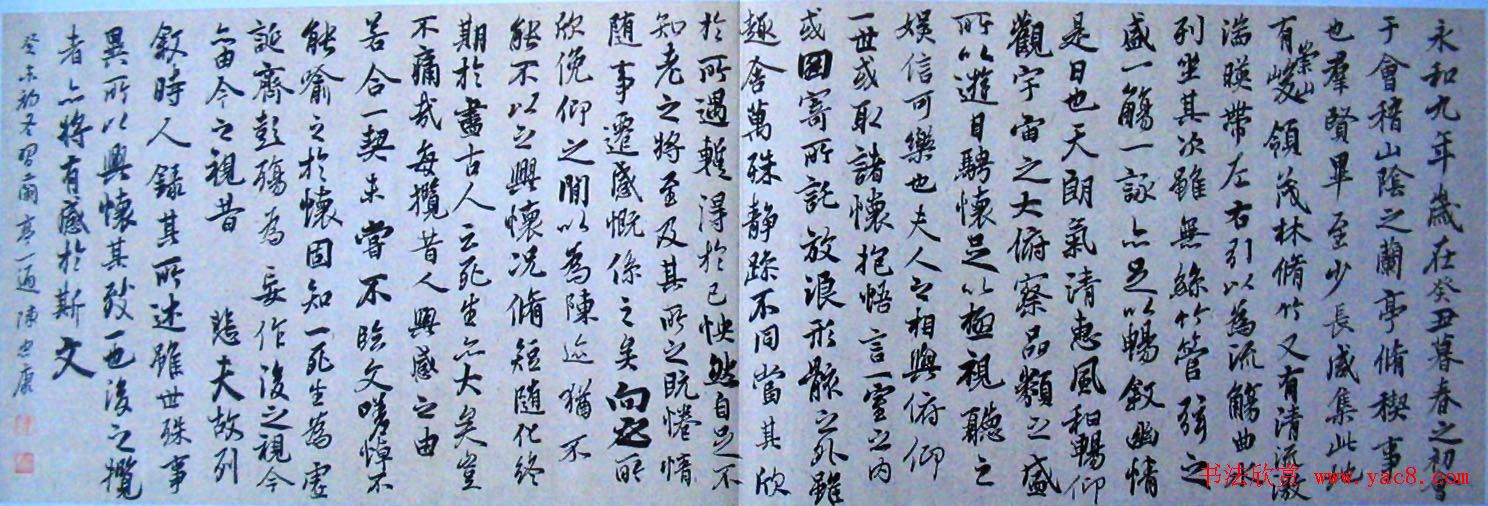 永和九年歲在癸丑暮春之初會
于會稽山陰之蘭亭脩稧事
也羣賢畢至少長咸集此地
有崇山峻領茂林脩竹又有清流激
湍暎帶左右引以為流觴曲水
列坐其次雖無絲竹管弦之
盛一觴一詠亦足以暢敘幽情
是日也天朗氣清惠風和暢仰
觀宇宙之大俯察品類之盛
所以遊目騁懷足以極視聽之
娛信可樂也夫人之相與俯仰
一世或取諸懷抱悟言一室之內
或因寄所託放浪形骸之外雖
趣舍萬殊靜躁不同當其欣
於所遇暫得於己怏然自足不
知老之將至及其所之既惓情
隨事遷感慨係之矣向之所
欣俛仰之間以為陳迹猶不
能不以之興懷況脩短隨化終
期於盡古人云死生亦大矣豈
不痛哉每攬昔人興感之由
若合一契未嘗不臨文嗟悼不
能喻之於懷固知一死生為虛
誕齊彭殤為妄作後之視今
亦由今之視昔悲夫故列
敘時人錄其所述雖世殊事
異所以興懷其致一也後之攬
者亦將有感於斯文
癸未初冬習蘭亭一過 陳忠康
书法欣赏 www.yac8.com